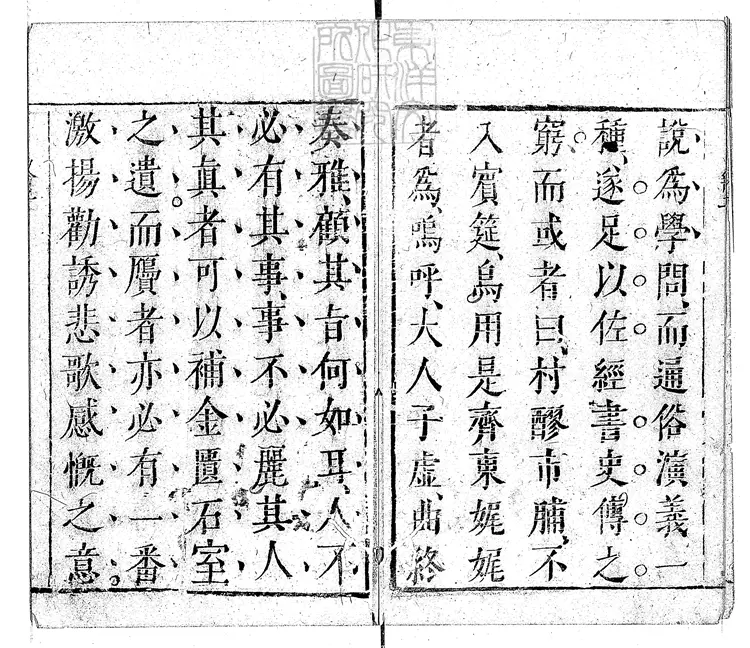 說爲學問、而通俗演義一
種、遂足以佐經書史傳之
窮而或者曰、村醪市脯、不
入賓筵、烏用是齊東娓娓
者爲、嗚呼、大人子虛、曲終
奏雅、顧其旨何如耳、人不
必有其事、事不必麗其人
其眞者可以補金匱石室
之遺。而贗者亦必有一番
激揚勸誘悲歌感慨之意。